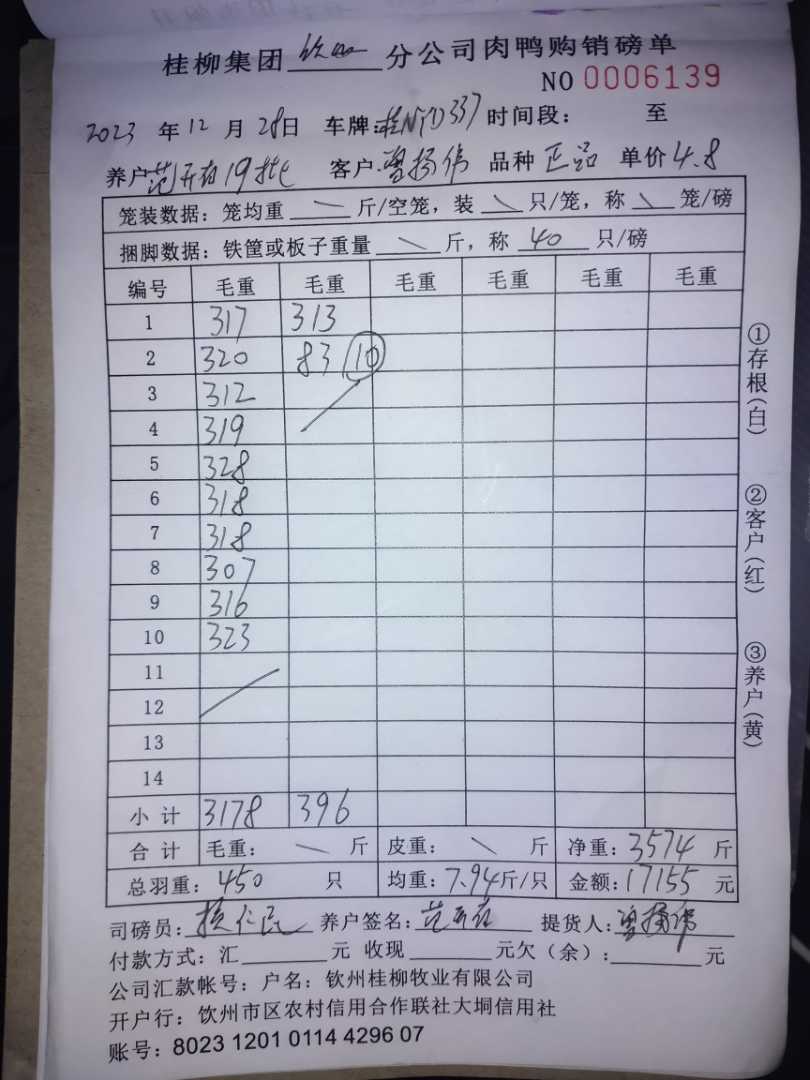 桂柳集团 钦州 分公司肉鸭购销磅单
NO 0006139
2023 年 12 月 28日 车牌: 337 时间段: 至
养户 范开 19批 客户: 曾扬伟 品种 正品 单价 4.8
笼装数据: 笼均重 \ 斤/空笼, 装 \ 只/笼, 称 \ 笼/磅
捆脚数据: 铁筐或板子重量 \ 斤, 称 40 只/磅
编号 毛重 毛重 毛重 毛重 毛重 毛重
1 317 313
2 320 83 10
3 312
4 319
5 328
6 318
7 318
8 307
9 316
10 323
11
12
13
14
小计 3178 396
合计 毛重: \ 斤 皮重: \ 斤 净重: 3574 斤
总羽重: 450 只 均重: 7.94斤/只 金额: 17155 元
司磅员: 仁民 养户签名: 范开 提货人: 曾扬伟
付款方式: 汇 元 收现 元欠(余): 元
公司汇款帐号: 户名: 钦州桂柳牧业有限公司
开户行: 钦州市区农村信用合作联社大垌信用社
账号: 8023 1201 0114 4296 07
①存根(白)
②客户(红)
③养户(黄)